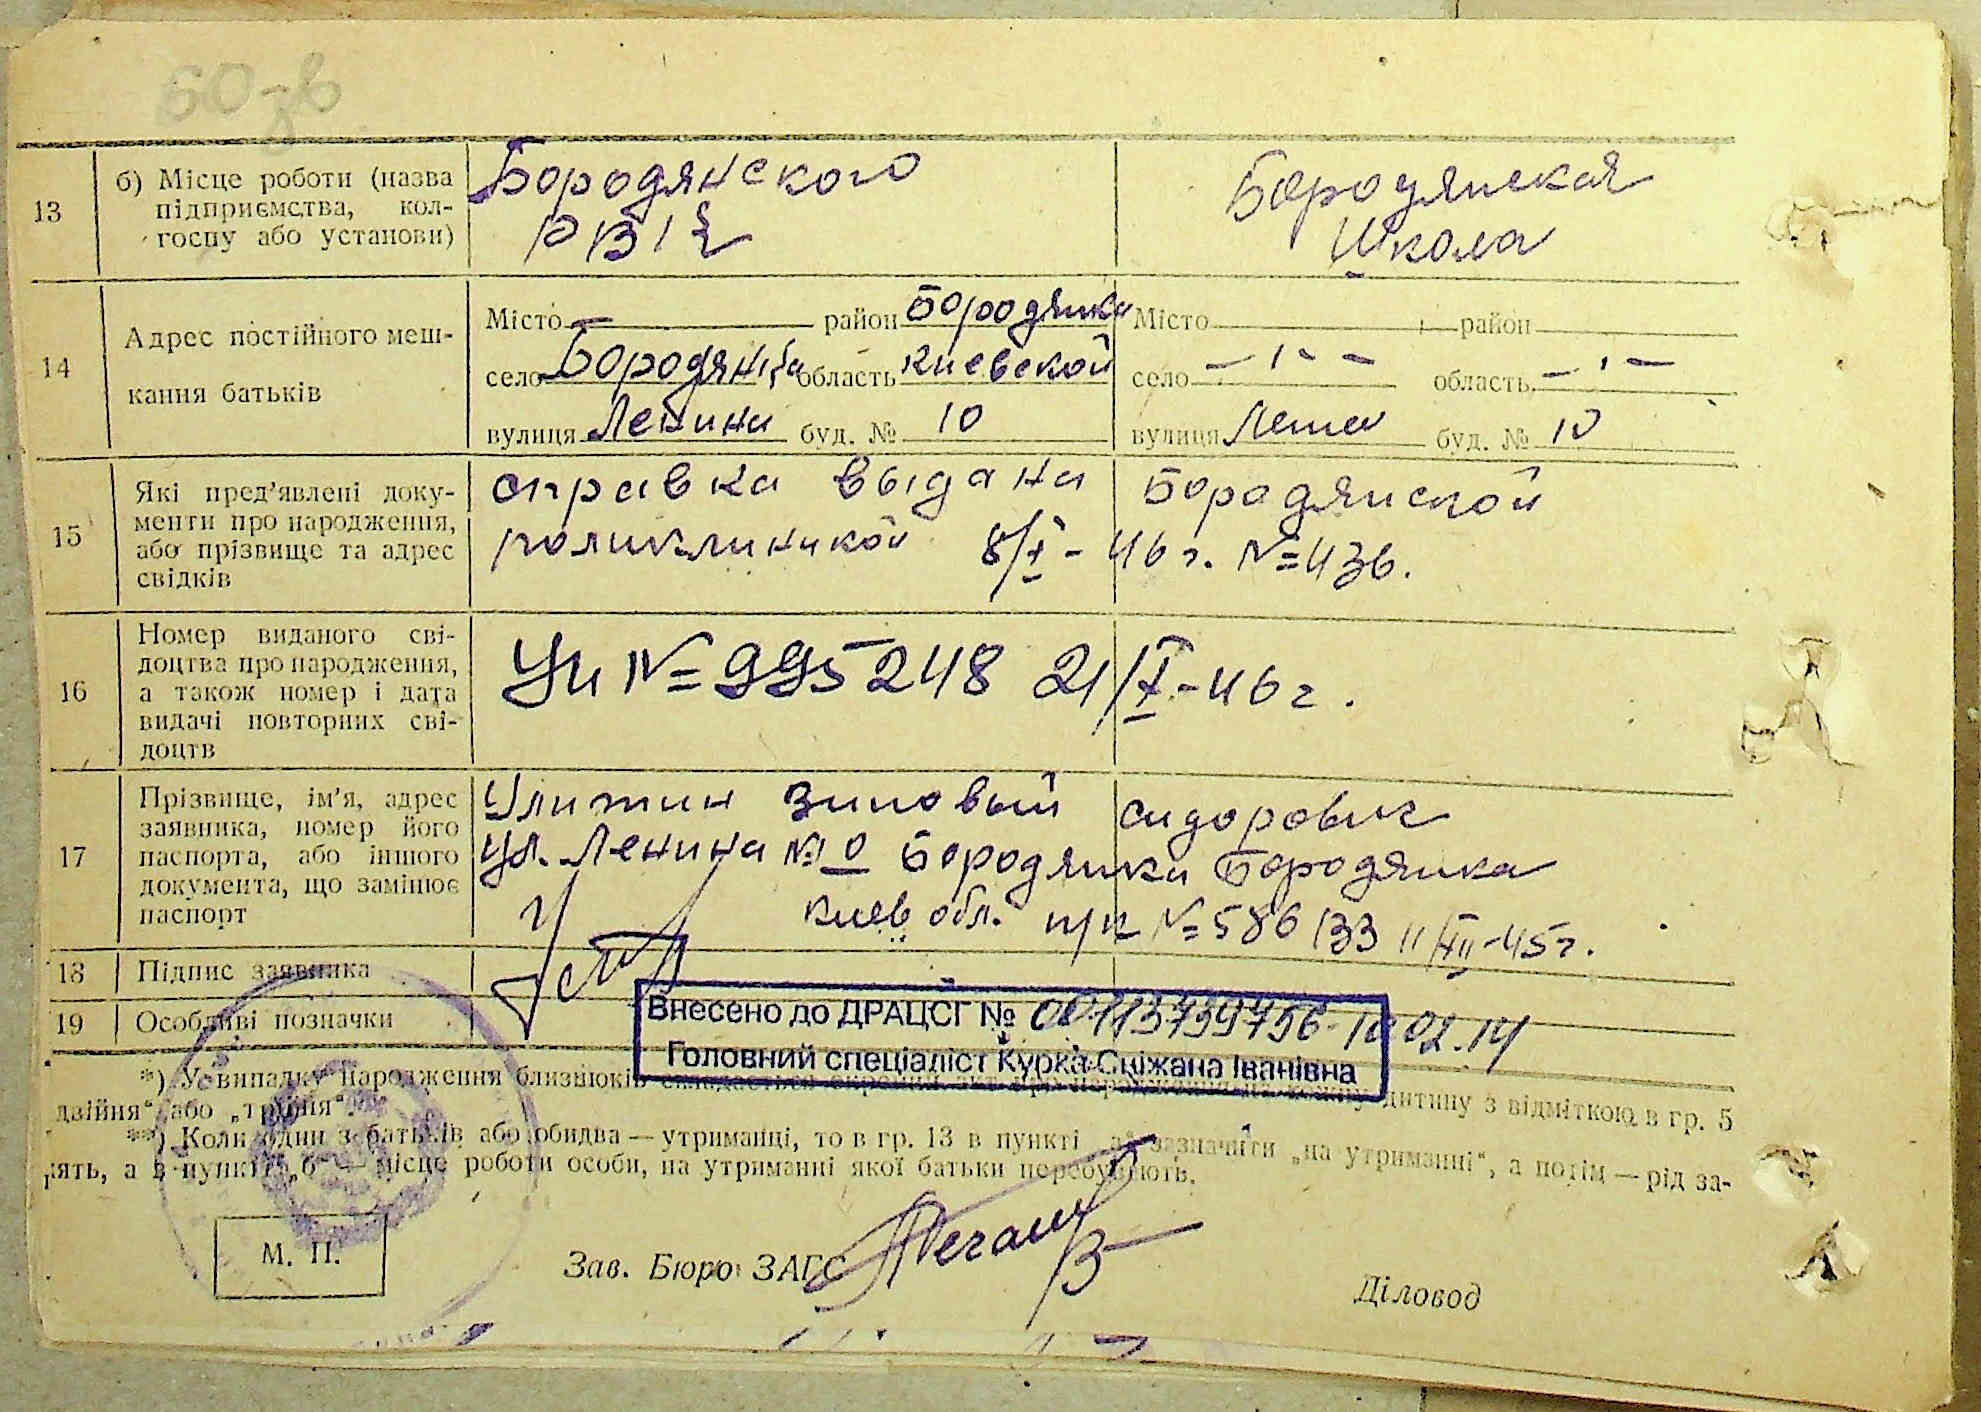 60-зв
13
б) Місце роботи (назва
підприємства, кол-
госпу або установи)
Бородянского
РВІК
Бородянская
Школа
14
Адрес постійного меш-
кання батьків
Місто — район Бородянка
село Бородянка область Киевской
вулиця Ленина буд. № 10
Місто район
село — ı - — область — ı —
вулиця Ленин буд. № 10
15
Які пред'явлені доку-
менти про народження,
або прізвище та адрес
свідків
справка выдана Бородянской
поликлиникой 8/X - 46 г. № 436.
16
Номер виданого сві-
доцтва про народження,
а також номер і дата
видачі повторних сві-
доцтв
№ 995248 21/X - 46 г.
17
Прізвище, ім'я, адрес
заявника, номер його
паспорта, або іншого
документа, що замінює
паспорт
Зиновый Сидорович
ул. Ленина №10 Бородянка Бородянка
Киев обл. п/п № 586133 11/XII-45 г.
18
Підпис заявника
19
Особливі позначки
Внесено до ДРАЦСГ № 00113739756-10.02.14
Головний спеціаліст Курка Сніжана Іванівна
*) У випадку народження близнюків складається окремий акт про народження на кожну дитину з відміткою в гр. 5
двійня" або „трійня".
**) Коли один з батьків або обидва — утриманці, то в гр. 13 в пункті „а" зазначити „на утриманні", а потім — рід за-
нять, а в пункті „б" — місце роботи особи, на утриманні якої батьки перебувають.
М. П.
Зав. Бюро ЗАГС
Діловод